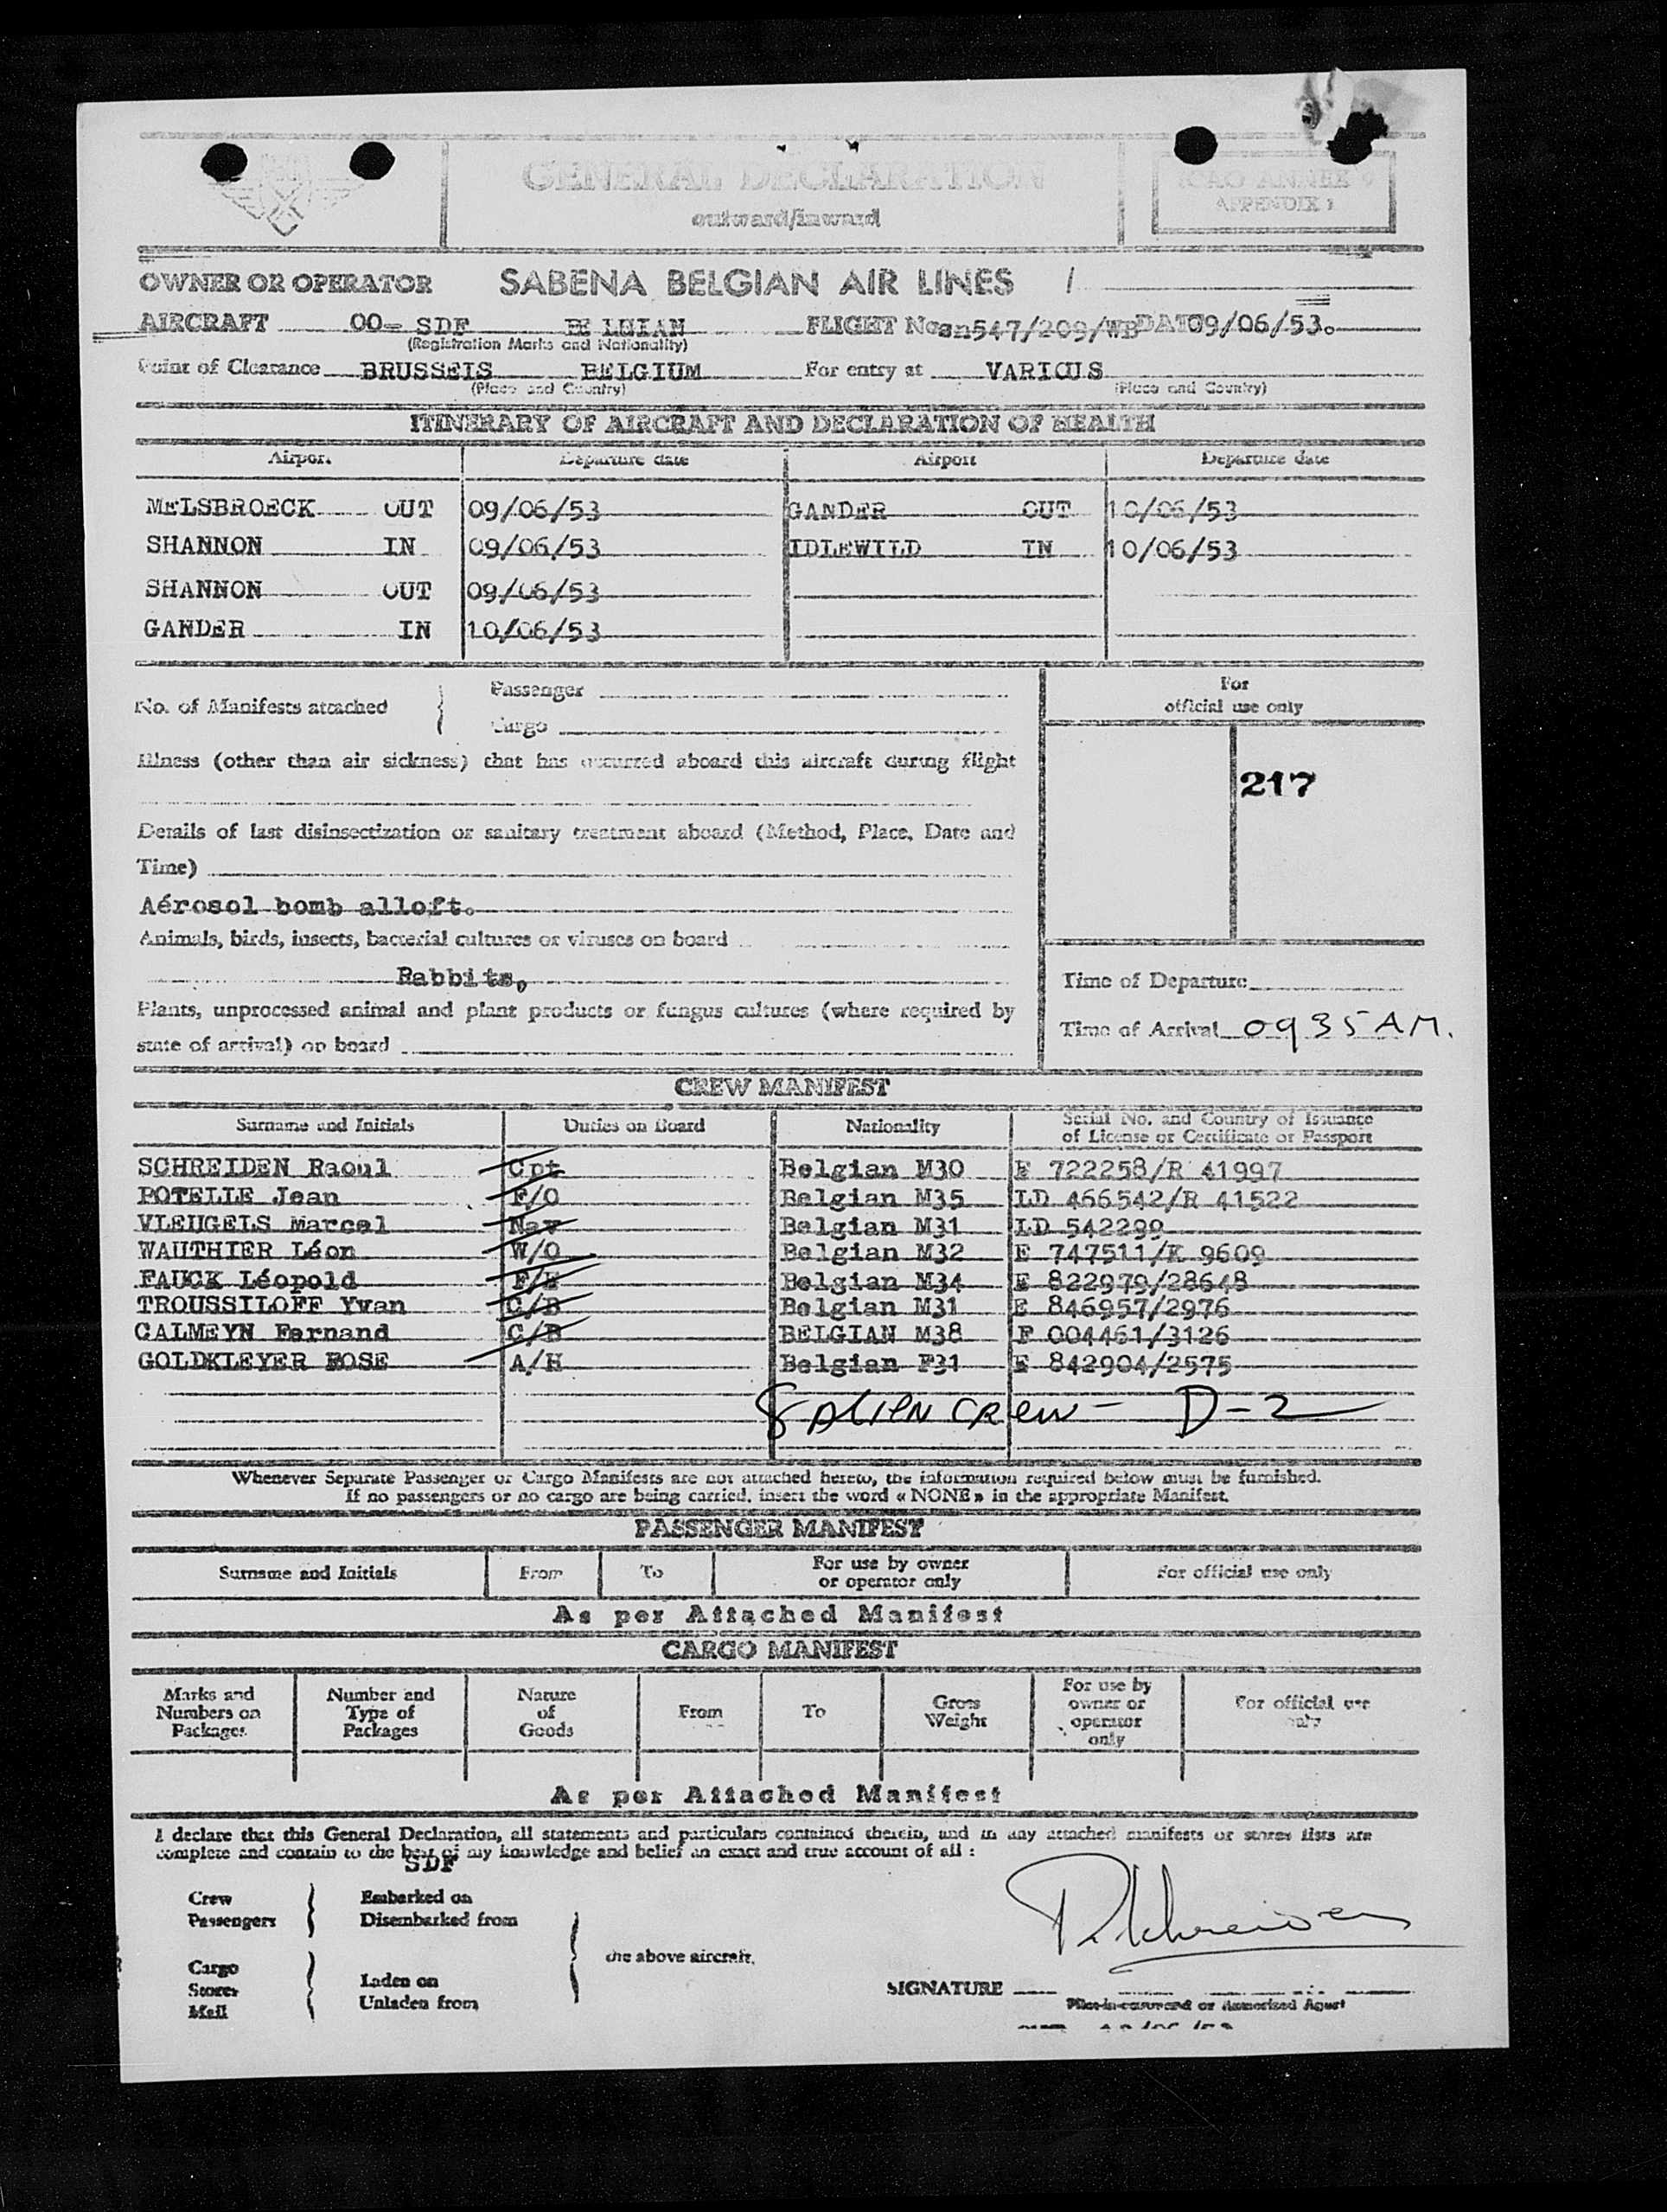 GENERAL DECLARATION
outward/inward
ICAO ANNEX 9
APPENDIX 1
OWNER OR OPERATOR SABENA BELGIAN AIR LINES /
AIRCRAFT OO- SDF FLIGHT No sn547/209/WB DATE 09/06/53.
(Registration Marks and Nationality)
Point of Clearance BRUSSELS BELGIUM For entry at VARIOUS
(Place and Country) (Place and Country)
ITINERARY OF AIRCRAFT AND DECLARATION OF HEALTH
Airport Departure date Airport Departure date
MELSBROECK OUT 09/06/53 GANDER OUT 10/06/53
SHANNON IN 09/06/53 IDLEWILD IN 10/06/53
SHANNON OUT 09/06/53
GANDER IN 10/06/53
No. of Manifests attached
Passenger
Cargo
For
official use only
Illness (other than air sickness) that has occurred aboard this aircraft during flight
217
Details of last disinsectization or sanitary treatment aboard (Method, Place, Date and
Time)
Aérosol bomb alloft.
Animals, birds, insects, bacterial cultures or viruses on board
Rabbits,
Time of Departure
Plants, unprocessed animal and plant products or fungus cultures (where required by
state of arrival) on board
Time of Arrival 0935 AM.
CREW MANIFEST
Surname and Initials Duties on Board Nationality Serial No. and Country of Issuance
of License or Certificate or Passport
SCHREIDEN Raoul Cpt Belgian M30 E 722258/R 41997
POTELLE Jean F/O Belgian M35 LD 466542/R 41522
VLEUGELS Marcel Nav Belgian M31 LD 542299
WAUTHIER Léon W/O Belgian M32 E 747511/K 9609
FAUCK Léopold F/E Belgian M34 E 822979/28648
TROUSSILOFF Yvan C/B Belgian M31 E 846957/2976
CALMEYN Fernand C/B BELGIAN M38 F 004461/3126
GOLDKLEYER ROSE A/H Belgian F31 E 842904/2575
8 ALIEN CREW - D-2
Whenever Separate Passenger or Cargo Manifests are not attached hereto, the information required below must be furnished.
If no passengers or no cargo are being carried, insert the word « NONE » in the appropriate Manifest.
PASSENGER MANIFEST
Surname and Initials From To For use by owner
or operator only For official use only
As per Attached Manifest
CARGO MANIFEST
Marks and
Numbers on
Packages
Number and
Type of
Packages
Nature
of
Goods
From
To
Gross
Weight
For use by
owner or
operator
only
For official use
only
As per Attached Manifest
I declare that this General Declaration, all statements and particulars contained therein, and in any attached manifests or stores lists are
complete and contain to the best of my knowledge and belief an exact and true account of all :
SDF
Crew
Passengers
Embarked on
Disembarked from
the above aircraft.
Cargo
Stores
Mail
Laden on
Unladen from
SIGNATURE
Pilot-in-command or Authorized Agent